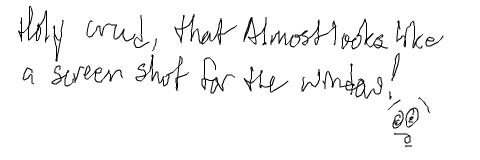 Holy crud, that Almost looks like
a screen shot for the window!